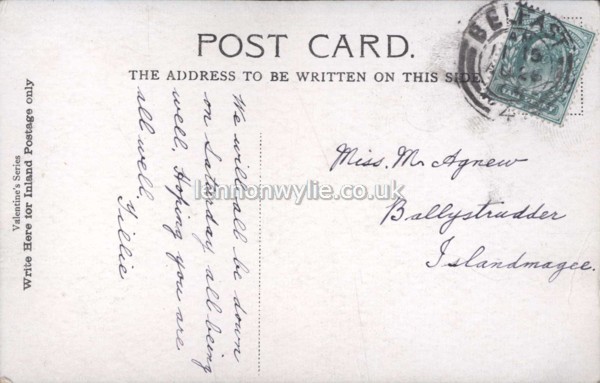 POST CARD.
THE ADDRESS TO BE WRITTEN ON THIS SIDE.
BELFAST
Valentine's Series
Write Here for Inland Postage only
We will all be down
on Saturday all being
well. Hoping you are
all well.
Tillie
Miss. M. Agnew
Ballystrudder
Islandmagee.
lennonwylie.co.uk